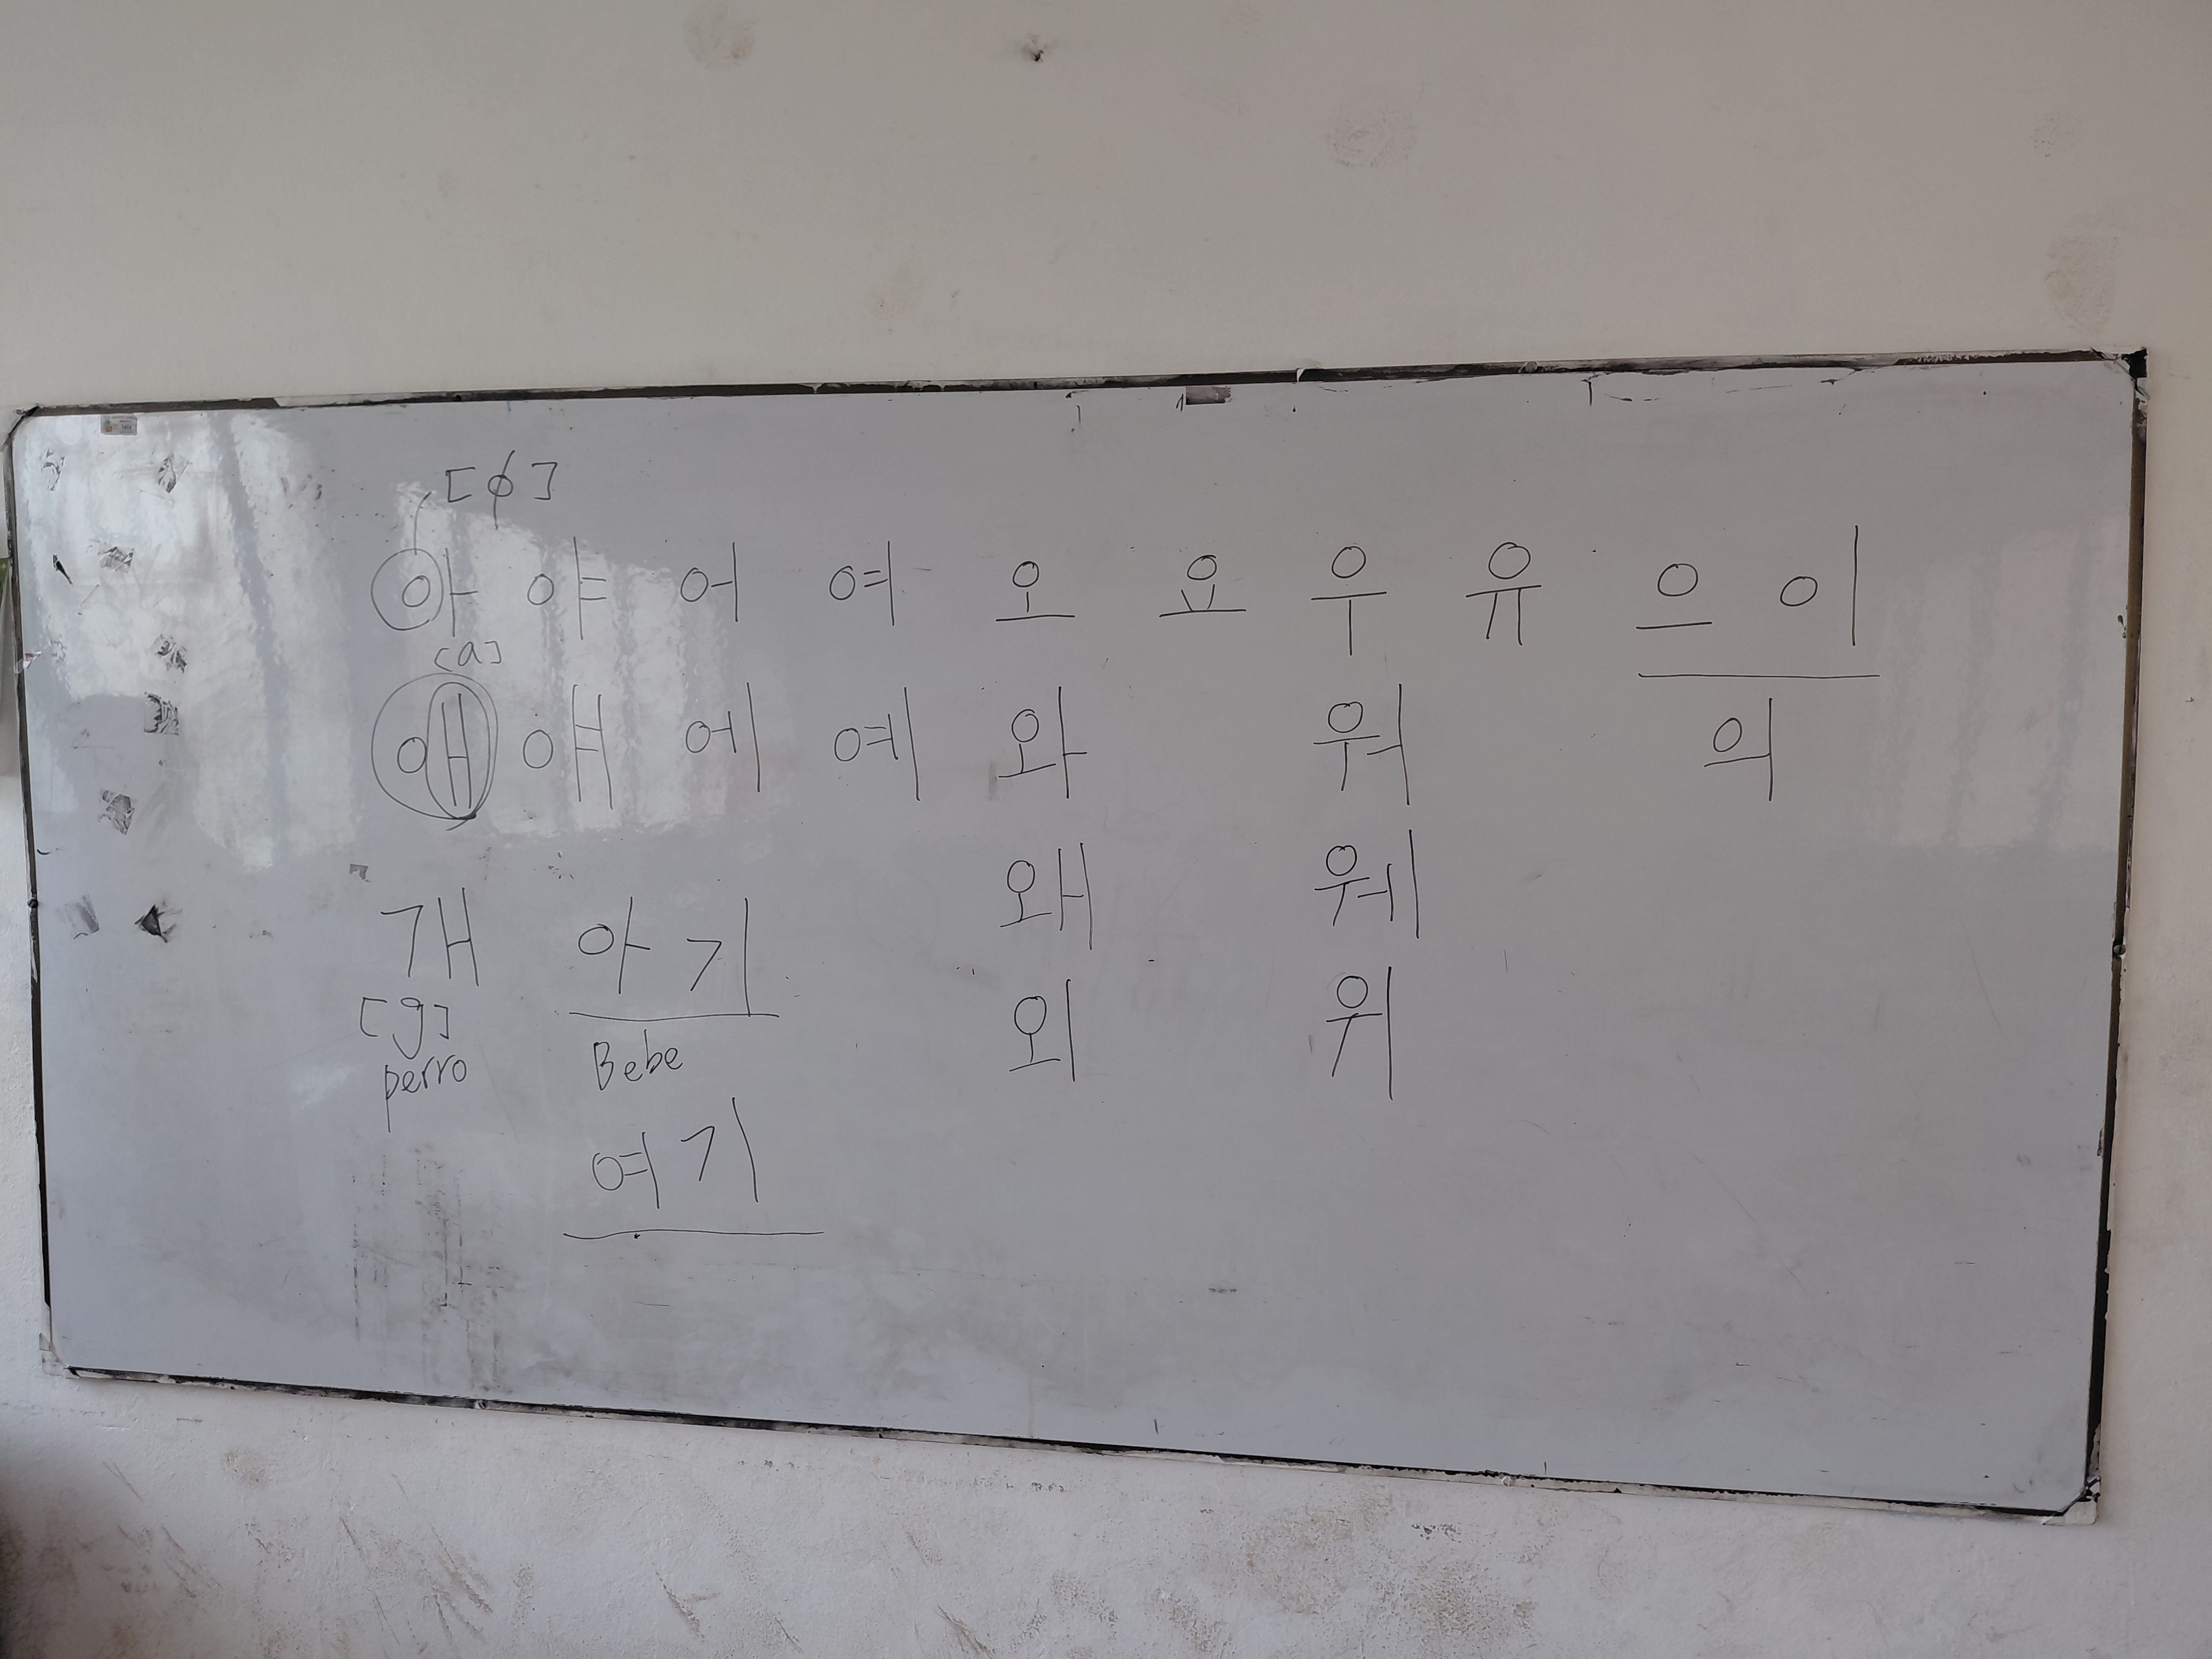 [ϕ]
아 야 어 여 오 요 우 유 으 이
[a]
애 얘 에 예 와 워 의
왜 웨
개 아기
[g] 외 위
perro Bebe
여기